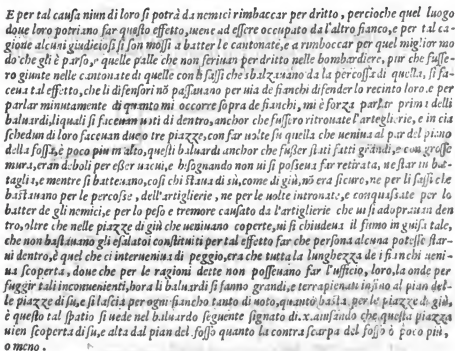 E per tal causa niun di loro si potrà da nemici rimbaccar per dritto, percioche quel luogo
doue loro potriano far questo effetto, uiene ad essere occupato da l'altro fianco, e per tal ca-
gione alcuni giudiciosi si son mossi a batter le cantonate, e a rimboccar per quel miglior mo
do che gli è parso, e quelle palle che non feriuan per dritto nelle bombardiere, pur che fusse-
ro giunte nelle cantonate di quelle con li sassi che sbalzauano da la percossa di questa, si fa-
ceua tal effetto, che li difensori nō passauano per uia de fianchi difender lo recinto loro. e per
parlar minutamente di quanto mi occorre sopra de fianchi, mi è forza parlar prima delli
baluardi, liquali si faceuan uoti di dentro, anchor che fussero ritrouate l'arteglierie, e in cia
schedun di loro faceuan due o tre piazze, con far uolte su quella che ueniua al par del piano
della fossa, è poco piu m'alto, questi baluardi anchor che fußer stati fatti grandi, e con grosse
mura, eran deboli per eßer uacui, e bisognando non ui si posseua far retirata, ne star in bat-
taglia, e mentre si batteuano, cosi chi staua di sù, come di giù, nō era sicuro, ne per li sassi che
bastauano per le percosse, dell'artiglierie, ne per le uolte intronate, e conquassate per lo
batter de gli nemici, e per lo peso e tremore causato da l'artiglierie che ui si adoprauan den
tro, oltre che nelle piazze di giù che ueniuano coperte, ui si chiudeua il fumo in guisa tale,
che non bastauano gli esalatoi constituiti per tal effetto far che persona alcuna potesse star-
ui dentro, è quel che ci interueniua di peggio, era che tutta la lunghezza de i fianchi ueni-
ua scoperta, doue che per le ragioni dette non posseuano far l'ufficio, loro, la onde per
fuggir tali inconuenienti, hora li baluardi si fanno grandi, e terrapienati insino al pian del-
le piazze di su, e si lascia per ogni fiancho tanto di uoto, quanto basta per le piazze di giù,
è questo tal spatio si uede nel baluardo seguente signato di .x. auisando che questa piazza
uien scoperta di su, e alta dal pian del fosso quanto la contra scarpa del fosso ò poco piu,
o meno.